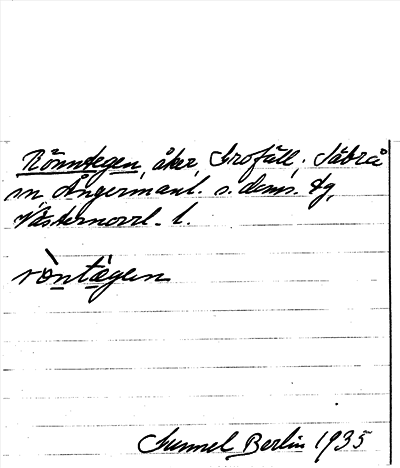 Rönntegen, åker, Grofäll. Säbrå
sn Ångermanl. s. doms. dg,
Västernorrl. l.
rò̱ntæ̀gen
Gunnel Berlin 1935